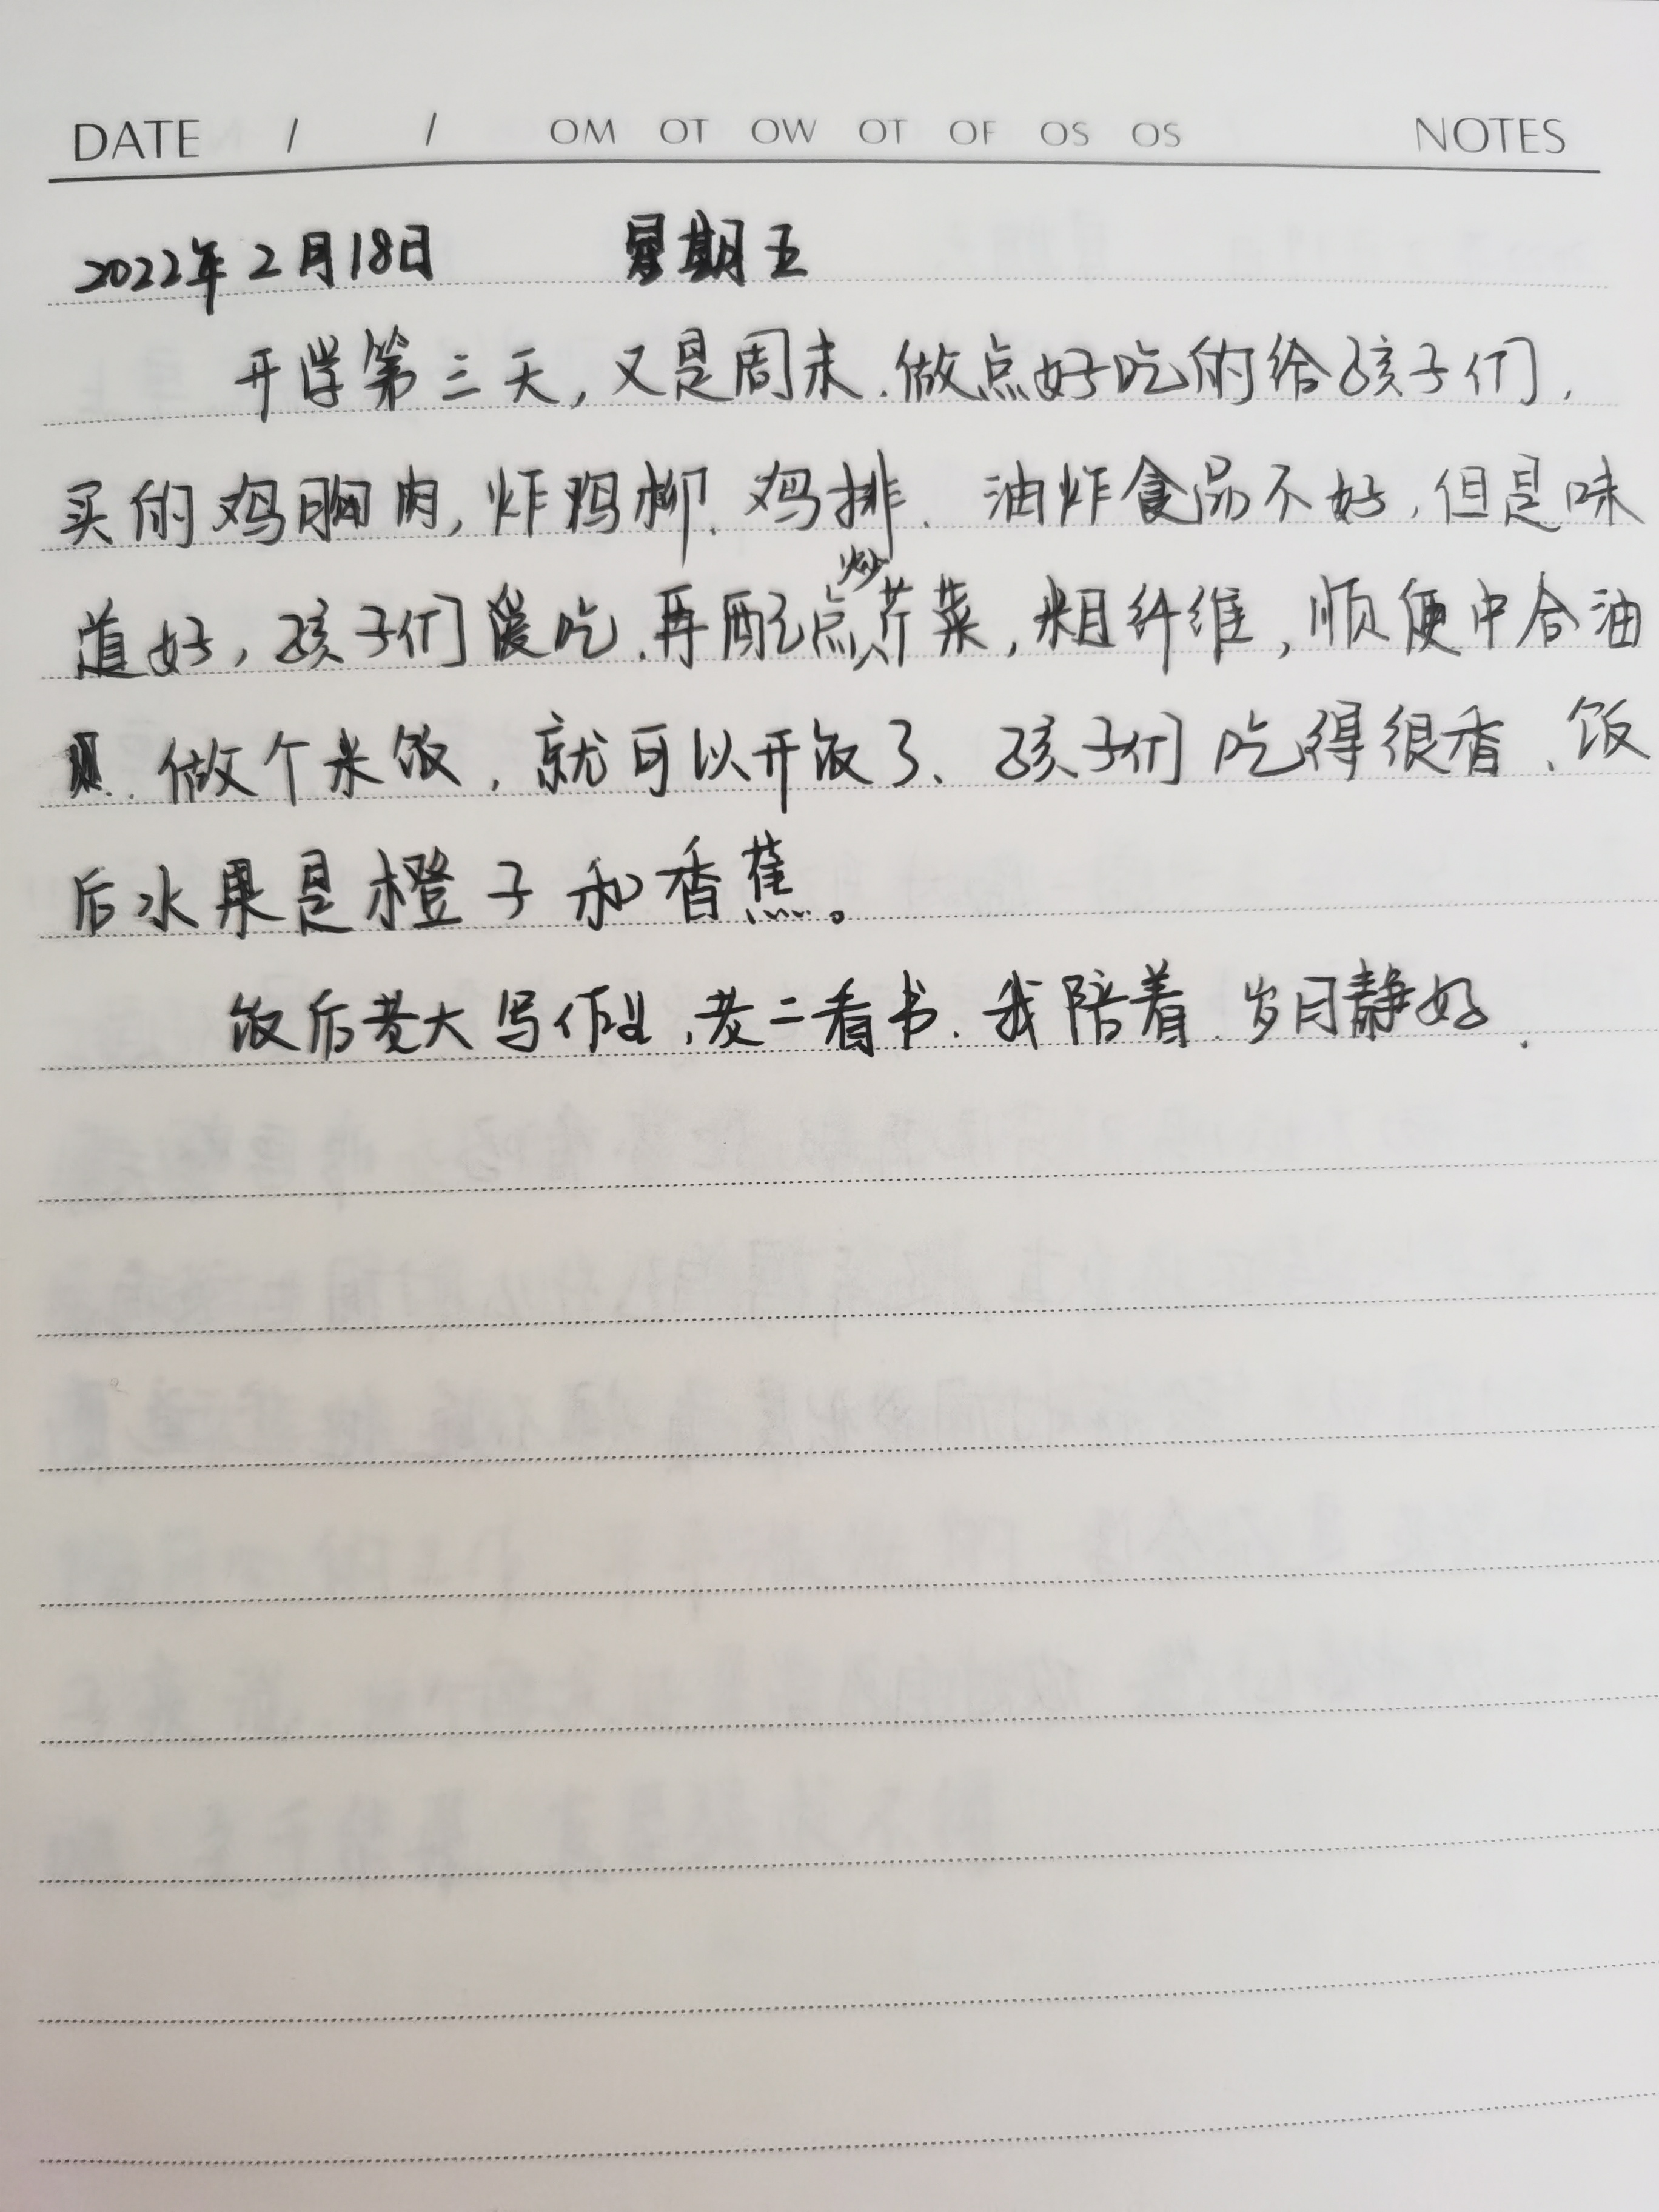 DATE / / OM OT OW OT OF OS OS NOTES
2022年2月18日 星期五
开学第三天,又是周末.做点好吃的给孩子们,
买的鸡胸肉,炸鸡柳.鸡排、油炸食品不好,但是味
道好,孩子们爱吃.再配点炒芹菜,粗纤维,顺便中合油
腻.做个米饭,就可以开饭了、孩子们吃得很香、饭
后水果是橙子和香蕉。
饭后老大写作业,老二看书.我陪着.岁月静好.